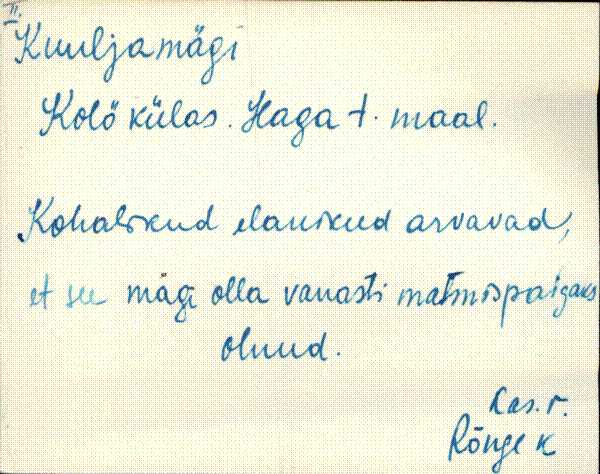 II.
Kuuljamägi
Kolö külas. Haga t. maal.
Kohalikud elanikud arvavad,
et see mägi olla vanasti matmispaigaks
olnud.
Ras. r.
Rõuge k